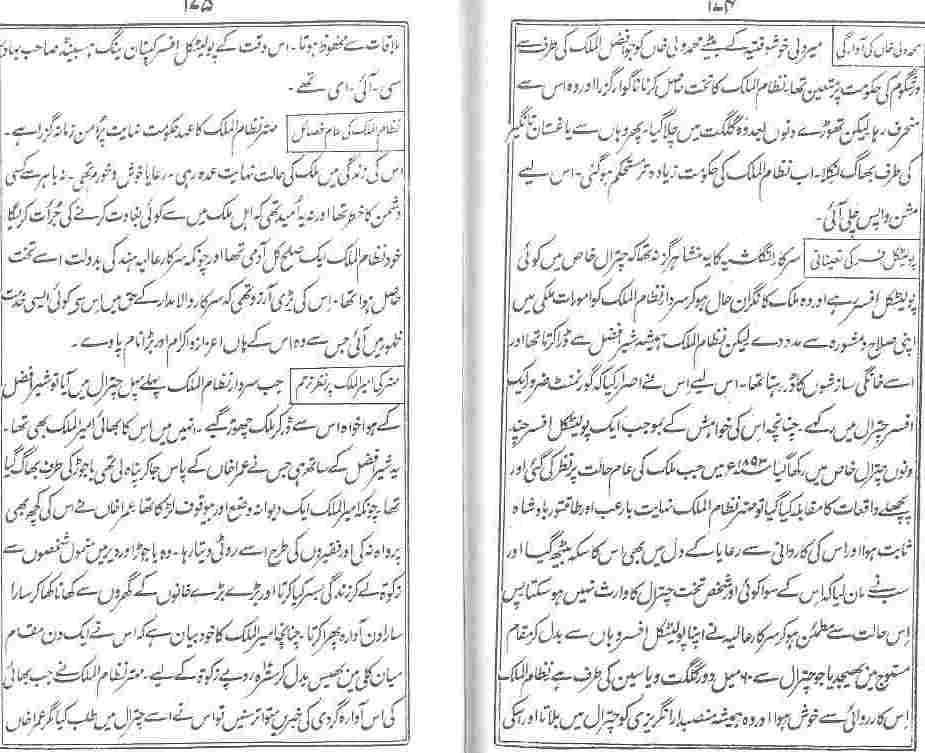 ۱۷۴
محمد ولی خاں کی آوارگی
میر ولی خوشوقتیہ کے بیٹے محمد ولی خاں کو جو افضل الملک کی طرف سے
ورشگوم کی حکومت پر متعین تھا۔ نظام الملک کا تخت حاصل کرنا ناگوار گزرا اور وہ اس سے
منحرف رہا لیکن تھوڑے دنوں بعد وہ گلگت میں چلا گیا۔ پھر وہاں سے یاغستان تانگیر
کی طرف بھاگ نکلا۔ اب نظام الملک کی حکومت زیادہ تر مستحکم ہو گئی۔ اس لیے
مشن واپس چلی آئی۔
پولیٹکل افسر کی تعیناتی
سرکار انگلشیہ کا یہ منشا ہرگز نہ تھا کہ چترال خاص میں کوئی
پولیٹکل افسر رہے اور وہ ملک کا نگران حال ہو کر سردار نظام الملک کو امورات ملکی میں
اپنی صلاح و مشورہ سے مدد دے لیکن نظام الملک ہمیشہ شیر افضل سے ڈرا کرتا تھا اور
اسے خانگی سازشوں کا ڈر رہتا تھا۔ اس لیے اس نے اصرار کیا کہ گورنمنٹ ضرور ایک
افسر چترال میں رکھے۔ چنانچہ اس کی خواہش کے بموجب ایک پولیٹکل افسر چند
دنوں چترال خاص میں رکھا گیا ۱۸۹۳ء میں جب ملک کی عام حالت پر نظر کی گئی اور
پچھلے واقعات کا مقابلہ کیا گیا تو مہتر نظام الملک نہایت بارعب اور طاقتور بادشاہ
ثابت ہوا اور اس کی کاروائی سے رعایا کے دل میں بھی اس کا سکہ بیٹھ گیا اور
سب نے مان لیا کہ اس کے سوا کوئی اور شخص تخت چترال کا وارث نہیں ہو سکتا پس
اس حالت سے مطمئن ہو کر سرکار عالیہ نے اپنا پولیٹکل افسر وہاں سے بدل کر مقام
مستوج میں بھیجدیا جو چترال سے ۶۰ میل دور گلگت و یاسین کی طرف ہے نظام الملک
اس کارروائی سے خوش ہوا اور وہ ہمیشہ منصبدار انگریزی کو چترال میں بلاتا اور اسکی
۱۷۵
ملاقات سے محظوظ ہوتا۔ اس وقت کے پولیٹکل افسر کپتان ینگ ہسبینڈ صاحب بہادر
سی۔ آئی۔ ای تھے۔
نظام الملک کی عام خصائل
مہتر نظام الملک کا عہد حکومت نہایت پرامن زمانہ گزرا ہے۔
اس کی زندگی میں ملک کی حالت نہایت عمدہ رہی۔ رعایا خوش و خورم تھی۔ نہ باہر سے کسی
دشمن کا خطرہ تھا اور نہ یہ امید تھی کہ اہل ملک میں سے کوئی بغاوت کرنے کی جرأت کریگا
خود نظام الملک ایک صلح کل آدمی تھا اور چونکہ سرکار عالیہ ہند کی بدولت اسے تخت
حاصل ہوا تھا۔ اس کی بڑی آرزو تھی کہ سرکار والا مدار کے حق میں اس سے کوئی ایسی خدمت
ظہور میں آئی جس سے وہ اس کے ہاں اعزاز و اکرام اور بڑا نام پاوے۔
مہتر کی امیر الملک پر نظر ترحم
جب سردار نظام الملک پہلے پہل چترال میں آیا تو شیر افضل
کے ہوا خواہ اس سے ڈر کر ملک چھوڑ گیے۔ انہیں میں اس کا بھائی امیر الملک بھی تھا۔
یہ شیر افضل کے ساتھ ہی جس نے عمرا خاں کے پاس جا کر پناہ لی تھی باجوڑ کی طرف بھاگ گیا
تھا۔ چونکہ امیر الملک ایک دیوانہ وضع اور بیوقوف لڑکا تھا عمرا خاں نے اس کی کچھ بھی
پرواہ نہ کی اور فقیروں کی طرح اسے روٹی دیتا رہا۔ وہ باجوڑ اور دیر میں متمول شخصوں سے
زکوۃ لے کر زندگی بسر کیا کرتا اور بڑے بڑے خانوں کے گھروں سے کھانا کھا کر سارا
سارا دن آوارہ پھرا کرتا۔ چنانچہ امیر الملک کا خود بیان ہے کہ اس نے ایک دن مقام
میاں کلی میں بھیس بدل کر سترہ روپے زکوۃ کے لیے۔ مہتر نظام الملک نے جب بھائی
کی اس آوارہ گردی کی خبریں متواتر سنیں تو اس نے اسے چترال میں طلب کیا مگر عمرا خاں